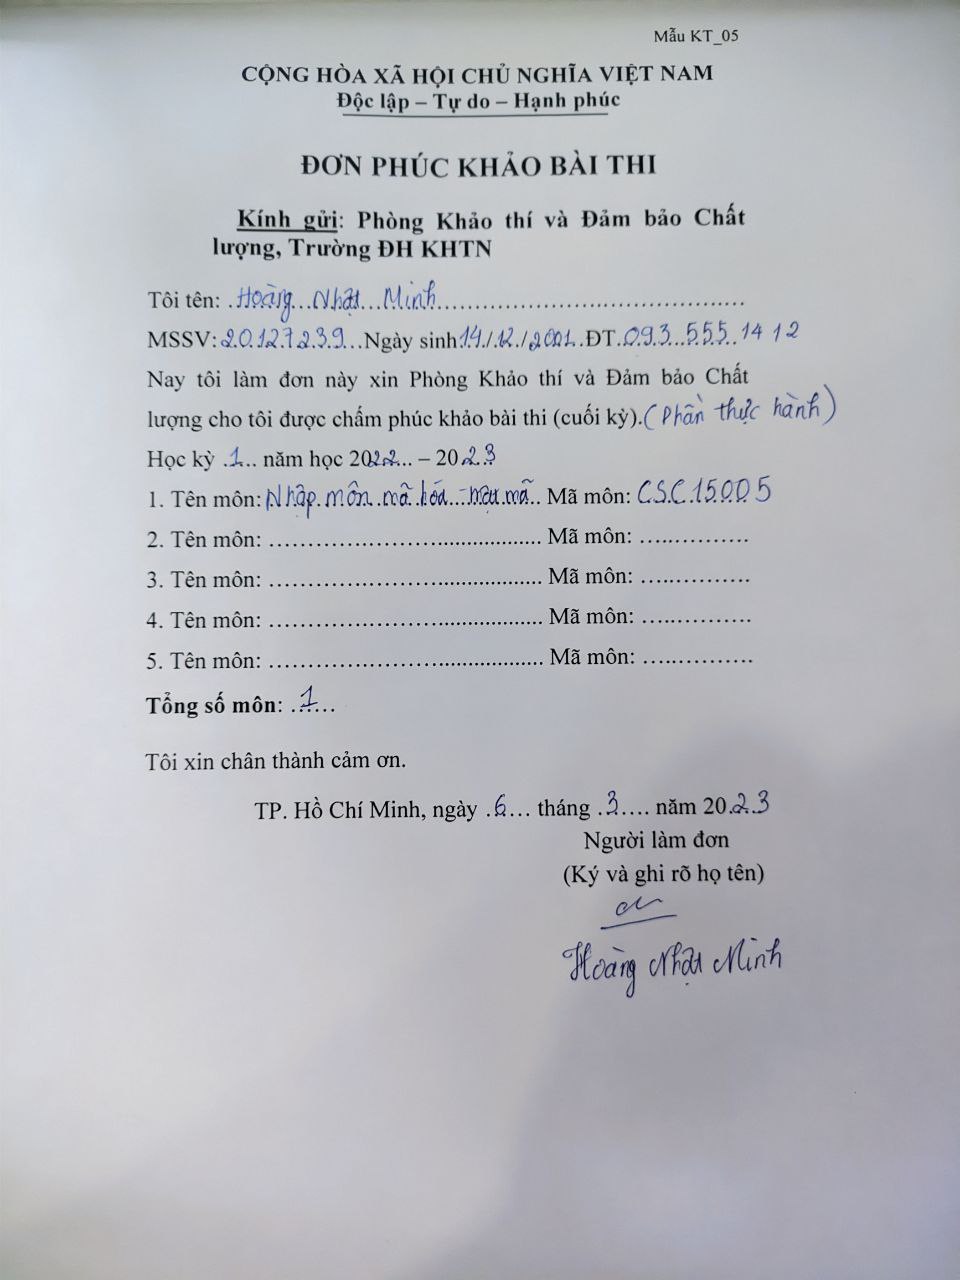 Mẫu KT_05
CỘNG HÒA XÃ HỘI CHỦ NGHĨA VIỆT NAM
Độc lập – Tự do – Hạnh phúc
ĐƠN PHÚC KHẢO BÀI THI
Kính gửi: Phòng Khảo thí và Đảm bảo Chất
lượng, Trường ĐH KHTN
Tôi tên: Hoàng Nhật Minh
MSSV: 20127239 Ngày sinh 14/12/2001 ĐT 093 555 1412
Nay tôi làm đơn này xin Phòng Khảo thí và Đảm bảo Chất
lượng cho tôi được chấm phúc khảo bài thi (cuối kỳ). (Phần thực hành)
Học kỳ 1 năm học 2022 – 2023
1. Tên môn: Nhập môn mã hóa - mật mã Mã môn: CSC15005
2. Tên môn: ........................ Mã môn: ............
3. Tên môn: ........................ Mã môn: ............
4. Tên môn: ........................ Mã môn: ............
5. Tên môn: ........................ Mã môn: ............
Tổng số môn: 1
Tôi xin chân thành cảm ơn.
TP. Hồ Chí Minh, ngày 6 tháng 3 năm 2023
Người làm đơn
(Ký và ghi rõ họ tên)
Hoàng Nhật Minh